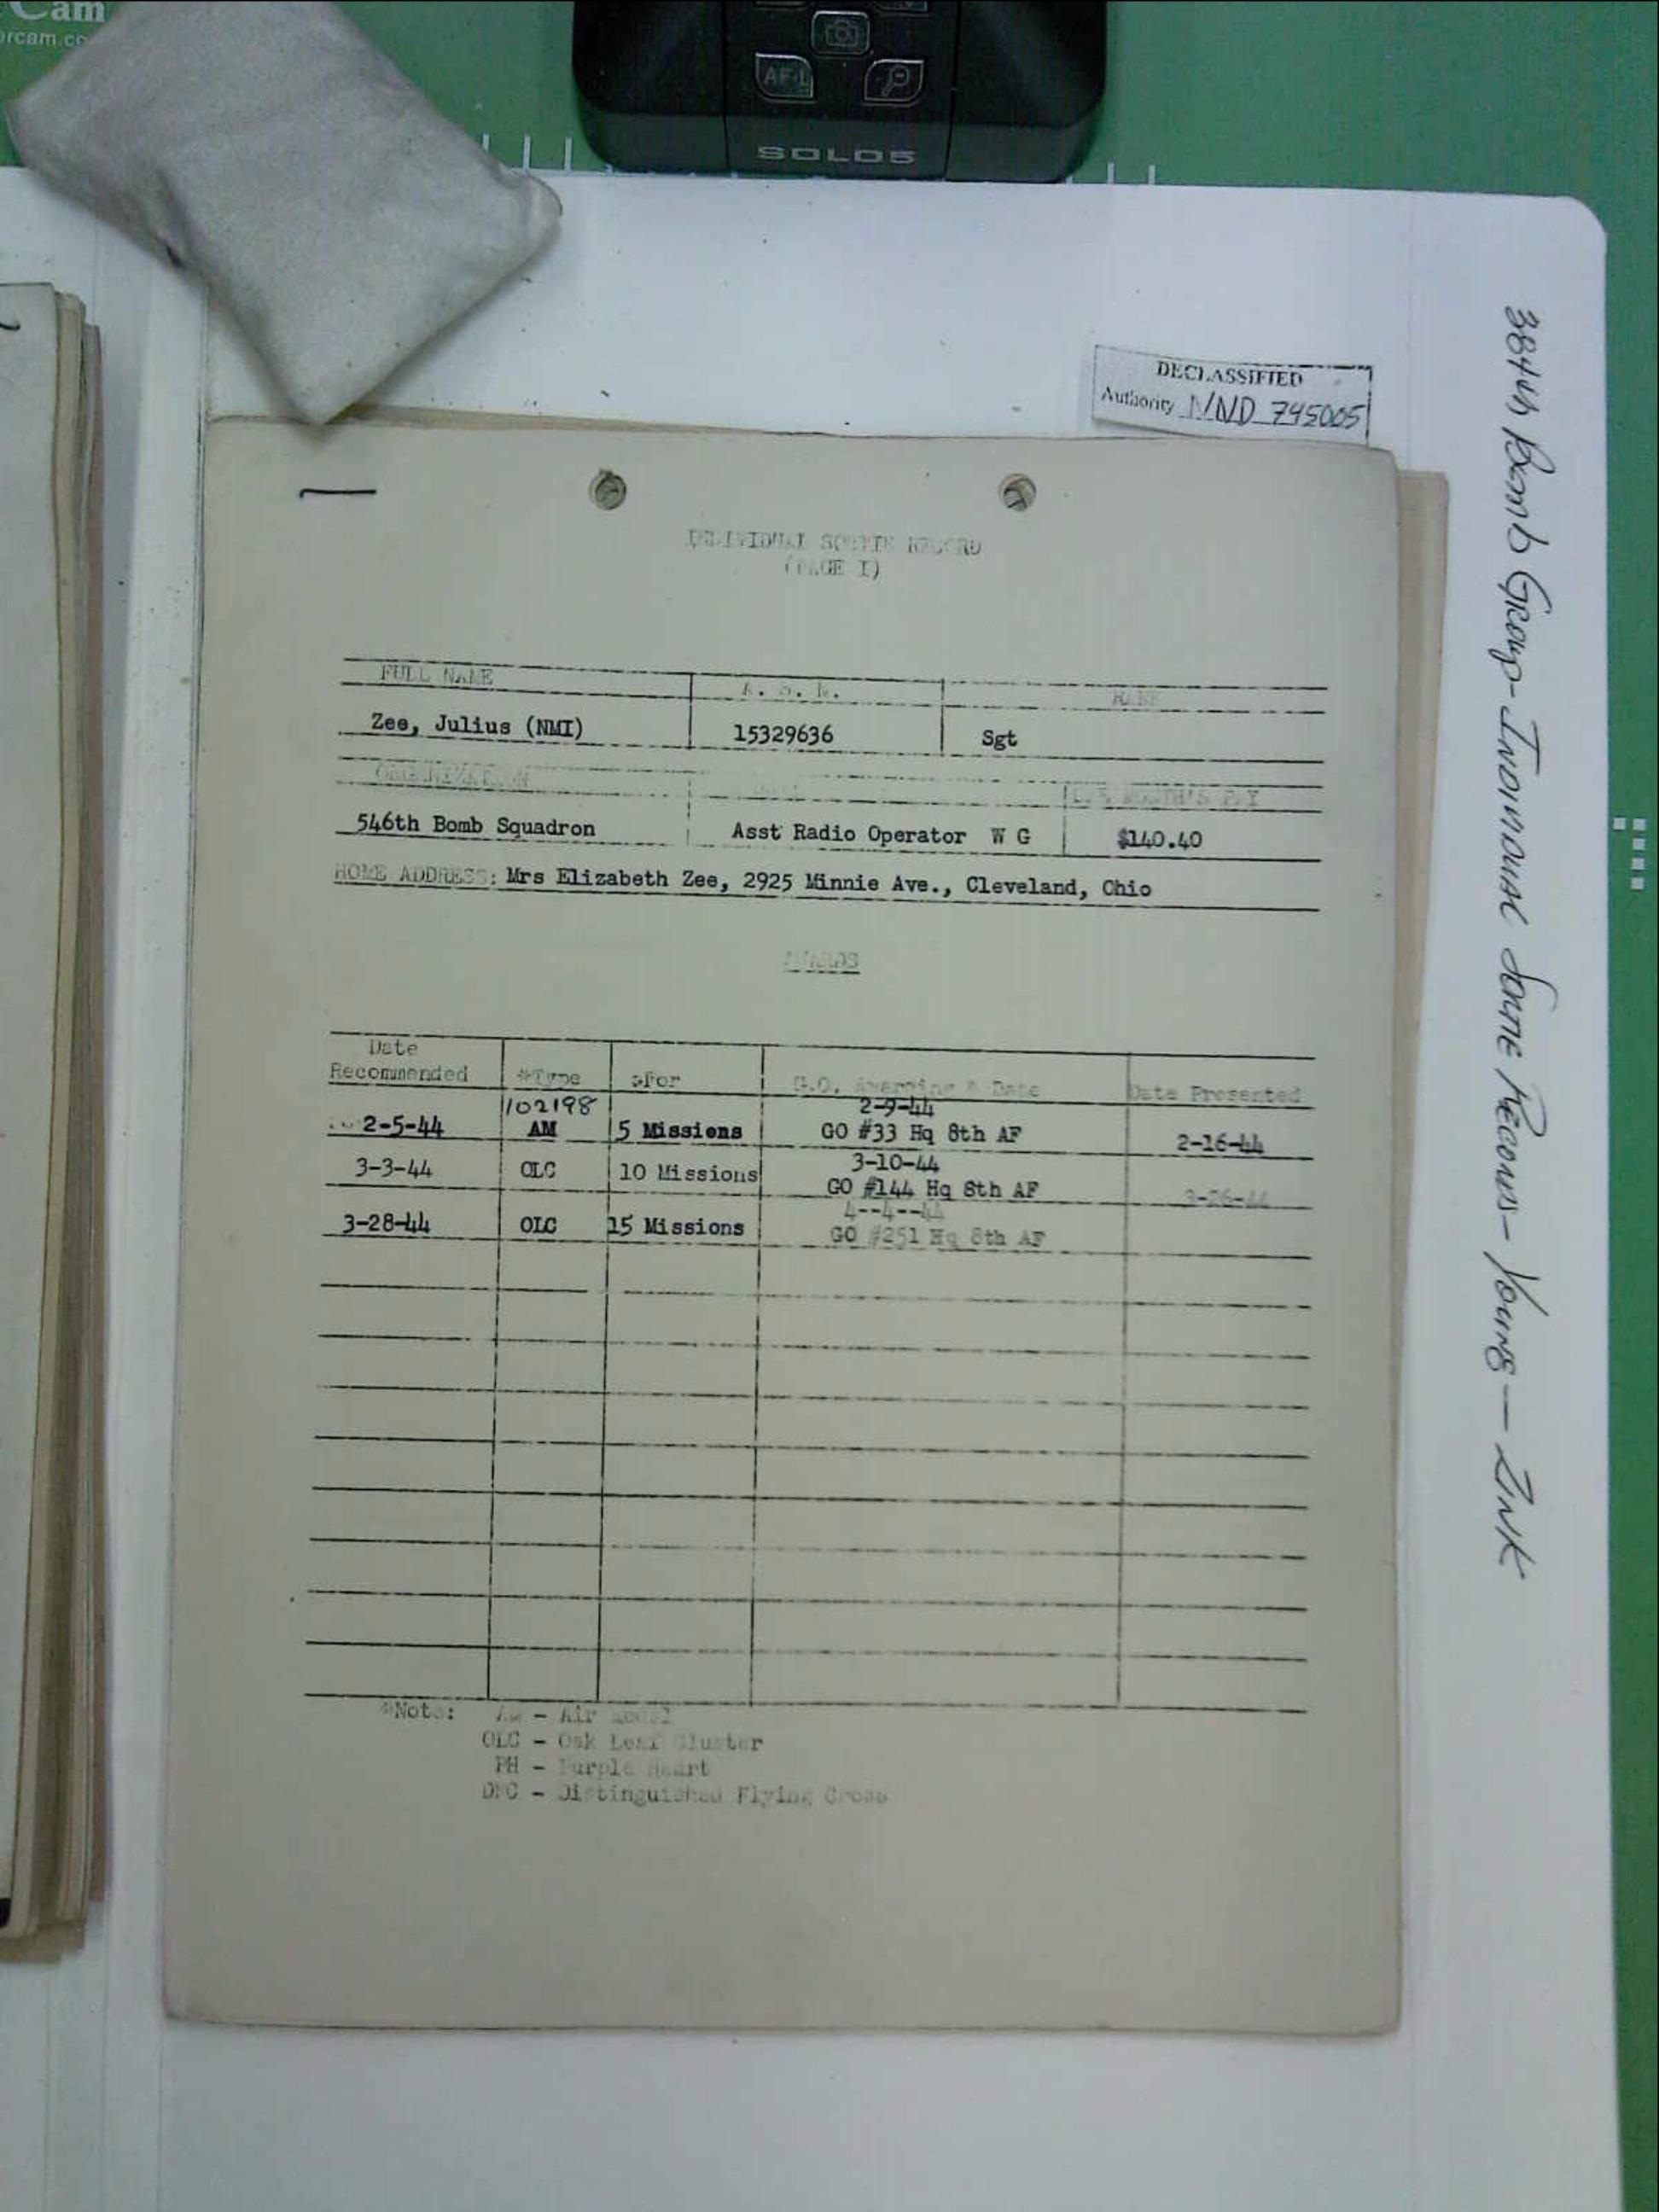 Cam
AF-L
SOLO5
DECLASSIFIED
Authority NND 745005
384th Bomb Group - Individual Sortie Records - Young — Zink
INDIVIDUAL SORTIE RECORD
(PAGE I)
FULL NAME A. S. N. RANK
Zee, Julius (NMI) 15329636 Sgt
ORGANIZATION MONTH'S PAY
546th Bomb Squadron Asst Radio Operator W G $140.40
HOME ADDRESS: Mrs Elizabeth Zee, 2925 Minnie Ave., Cleveland, Ohio
AWARDS
Date
Recommended *Type *For G.O. Awarding & Date Date Presented
102198 2-9-44
2-5-44 AM 5 Missions GO #33 Hq 8th AF 2-16-44
3-10-44
3-3-44 OLC 10 Missions GO #144 Hq 8th AF 3-26-44
4--4--44
3-28-44 OLC 15 Missions GO #251 Hq 8th AF
*Note: AM - Air Medal
OLC - Oak Leaf Cluster
PH - Purple Heart
DFC - Distinguished Flying Cross